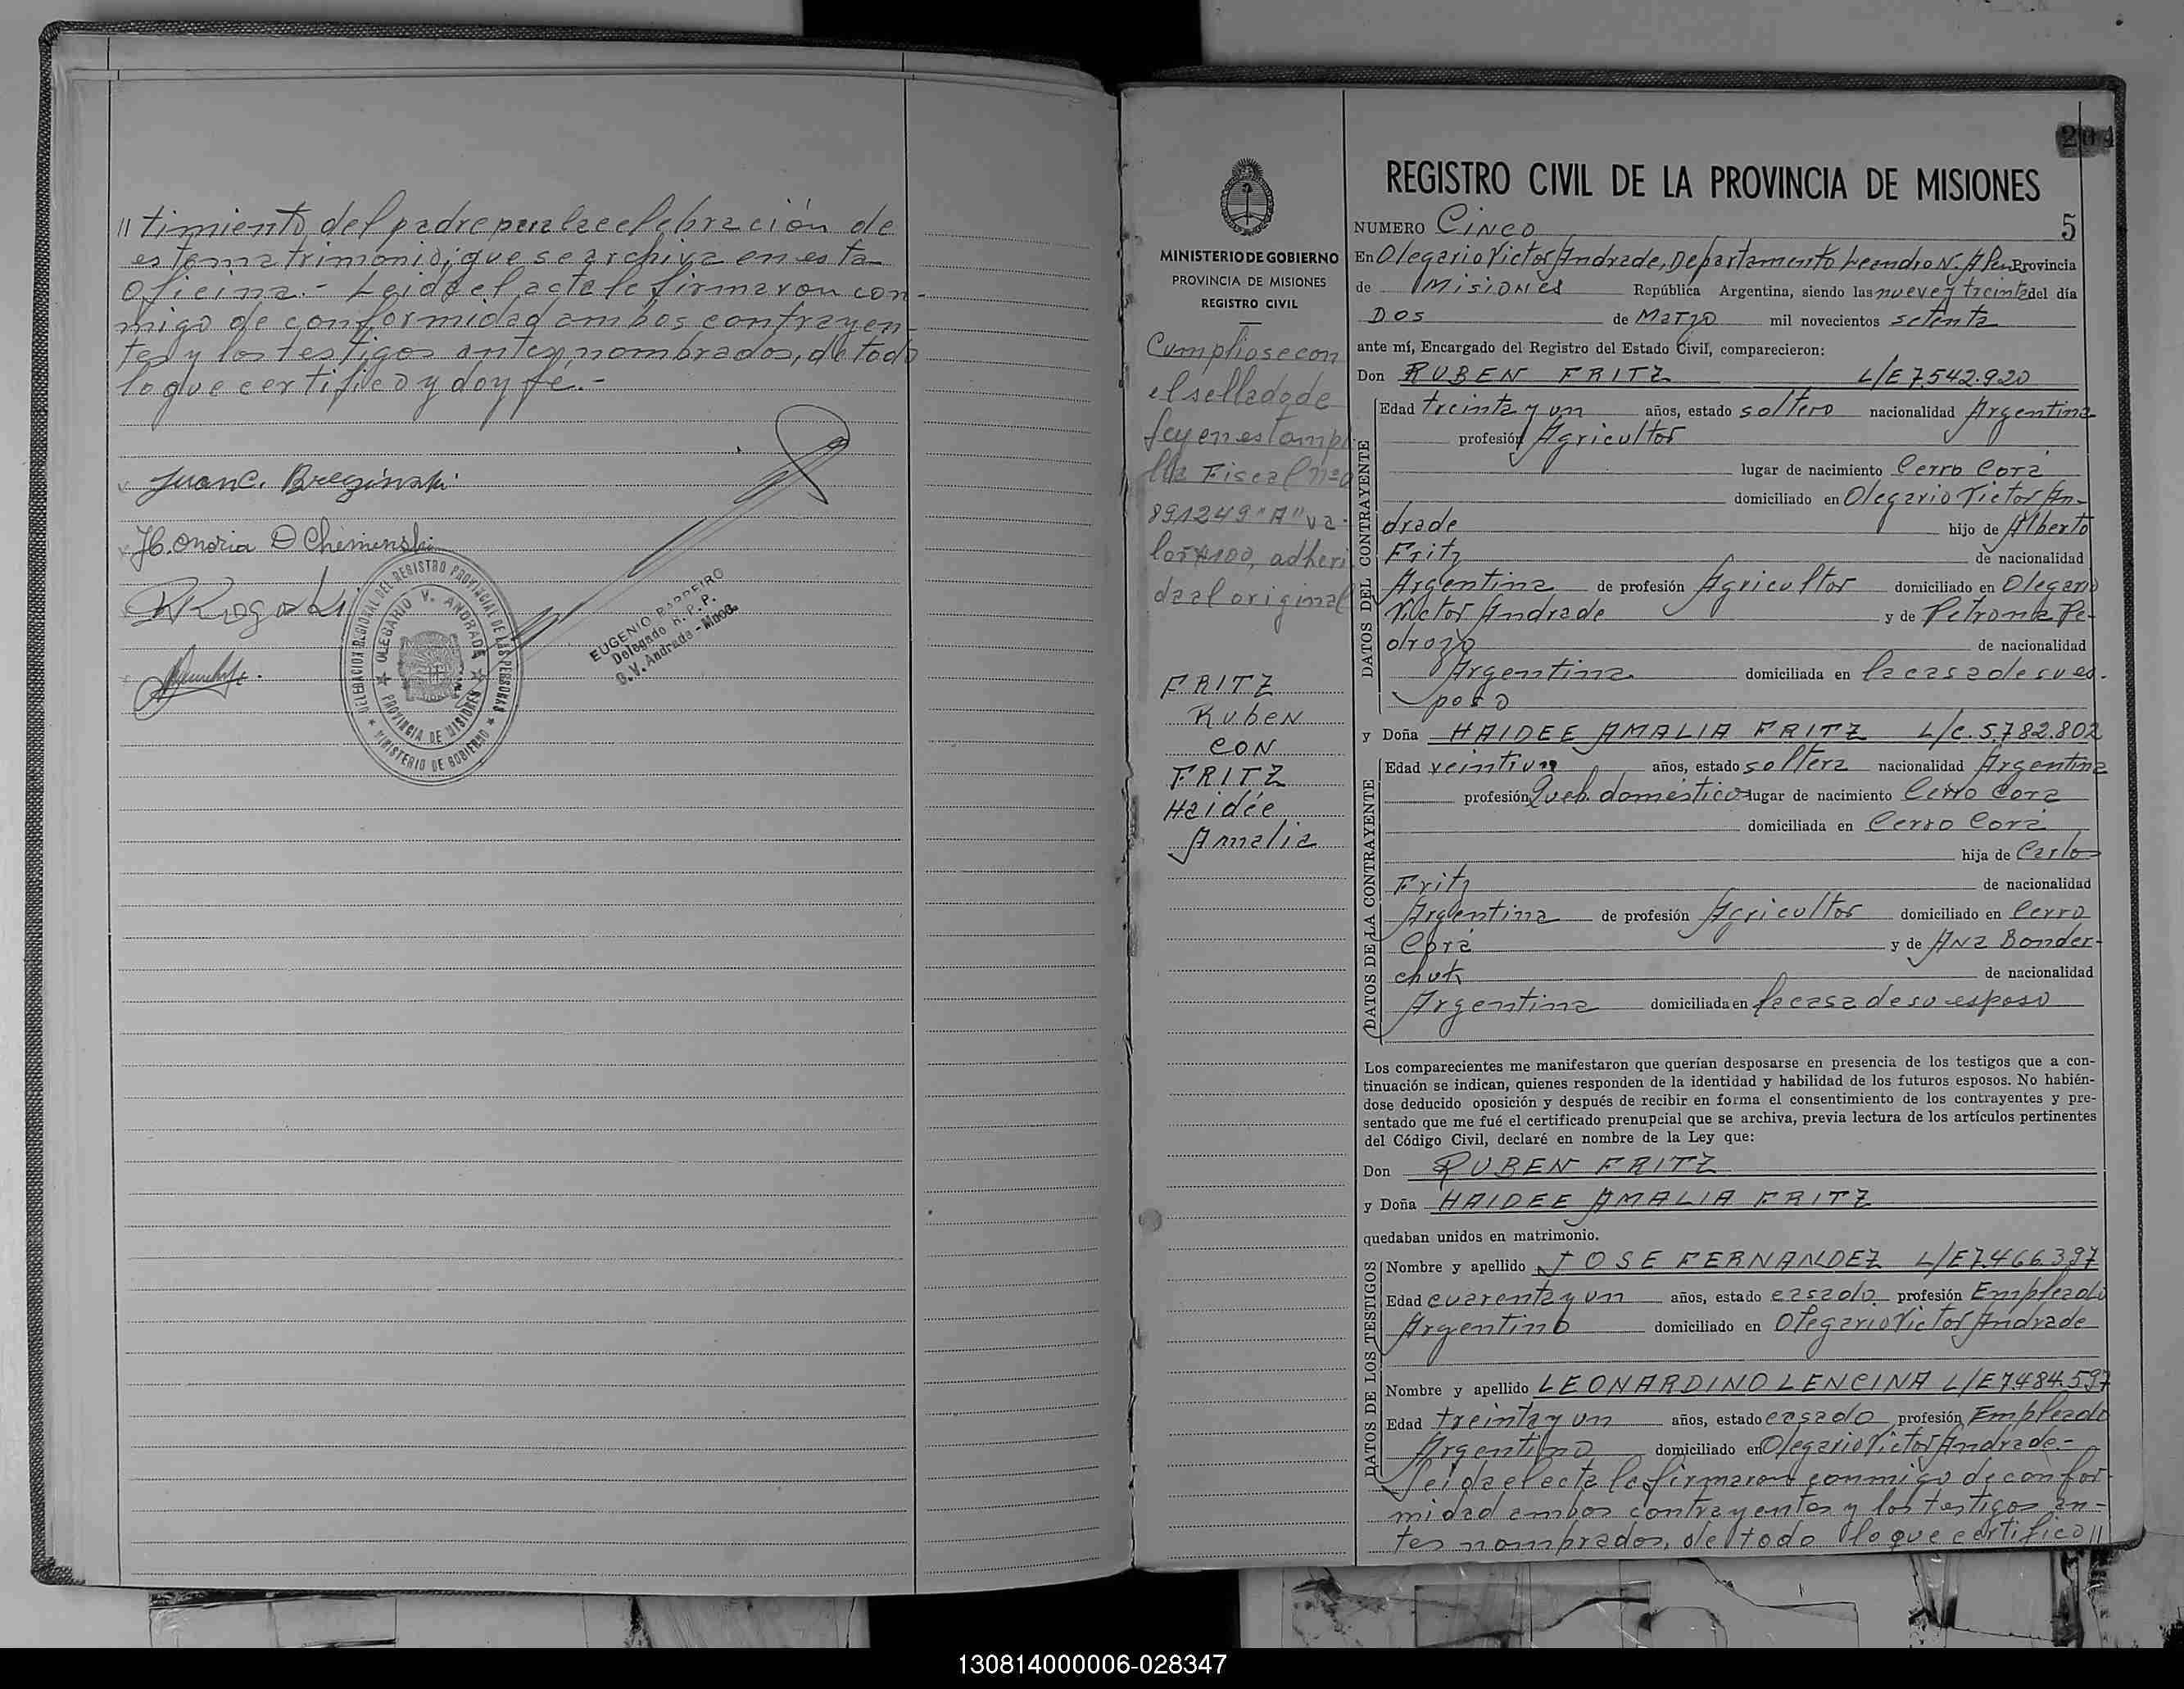 // timiento del padre para la celebración de
este matrimonio, que se archiva en esta
Oficina.- Leida el acta la firmaron con-
migo de conformidad ambos contrayen-
tes y los testigos antes nombrados, de todo
lo que certifico y doy fé.-
Juan C. Breginski
Honoria O Chemenski
DELEGACION REGIONAL DEL REGISTRO PROVINCIAL DE LAS PERSONAS
OLEGARIO V. ANDRADE
PROVINCIA DE MISIONES
MINISTERIO DE GOBIERNO
EUGENIO BARREIRO
Delegado R. P. P.
O. V. Andrade - Mnes.
MINISTERIO DE GOBIERNO
PROVINCIA DE MISIONES
REGISTRO CIVIL
Cumpliose con
el sellado de
ley en estampi-
lla Fiscal nº
891249 "A" va-
lor $100, adheri
da al original
FRITZ
Ruben
CON
FRITZ
Haidée
Amalia
204
REGISTRO CIVIL DE LA PROVINCIA DE MISIONES
NUMERO Cinco 5
En Olegario Victor Andrade, Departamento Leandro N. Alem Provincia
de Misiones República Argentina, siendo las nueve y treinta del día
Dos de Marzo mil novecientos setenta
ante mí, Encargado del Registro del Estado Civil, comparecieron:
Don RUBEN FRITZ L/E 7.542.920
DATOS DEL CONTRAYENTE
Edad treinta y un años, estado soltero nacionalidad Argentina
profesión Agricultor
lugar de nacimiento Cerro Corá
domiciliado en Olegario Victor An-
drade hijo de Alberto
Fritz de nacionalidad
Argentina de profesión Agricultor domiciliado en Olegario
Victor Andrade y de Petrona Pe-
drozo de nacionalidad
Argentina domiciliada en la casa de su es-
poso
y Doña HAIDEE AMALIA FRITZ L/C. 5.782.802
DATOS DE LA CONTRAYENTE
Edad veintiun años, estado soltera nacionalidad Argentina
profesión Queh. domestico lugar de nacimiento Cerro Corá
domiciliada en Cerro Corá
hija de Carlos
Fritz de nacionalidad
Argentina de profesión Agricultor domiciliado en Cerro
Corá y de Ana Bonder-
chuk de nacionalidad
Argentina domiciliada en la casa de su esposo
Los comparecientes me manifestaron que querían desposarse en presencia de los testigos que a con-
tinuación se indican, quienes responden de la identidad y habilidad de los futuros esposos. No habién-
dose deducido oposición y después de recibir en forma el consentimiento de los contrayentes y pre-
sentado que me fué el certificado prenupcial que se archiva, previa lectura de los artículos pertinentes
del Código Civil, declaré en nombre de la Ley que:
Don RUBEN FRITZ
y Doña HAIDEE AMALIA FRITZ
quedaban unidos en matrimonio.
DATOS DE LOS TESTIGOS
Nombre y apellido JOSE FERNANDEZ L/E 7.466.397
Edad cuarenta y un años, estado casado profesión Empleado
Argentino domiciliado en Olegario Victor Andrade
Nombre y apellido LEONARDINO LENCINA L/E 7.484.597
Edad treinta y un años, estado casado profesión Empleado
Argentino domiciliado en Olegario Victor Andrade.-
Leida el acta la firmaron conmigo de confor-
midad ambos contrayentes y los testigos an-
tes nombrados, de todo lo que certifico //
130814000006-028347